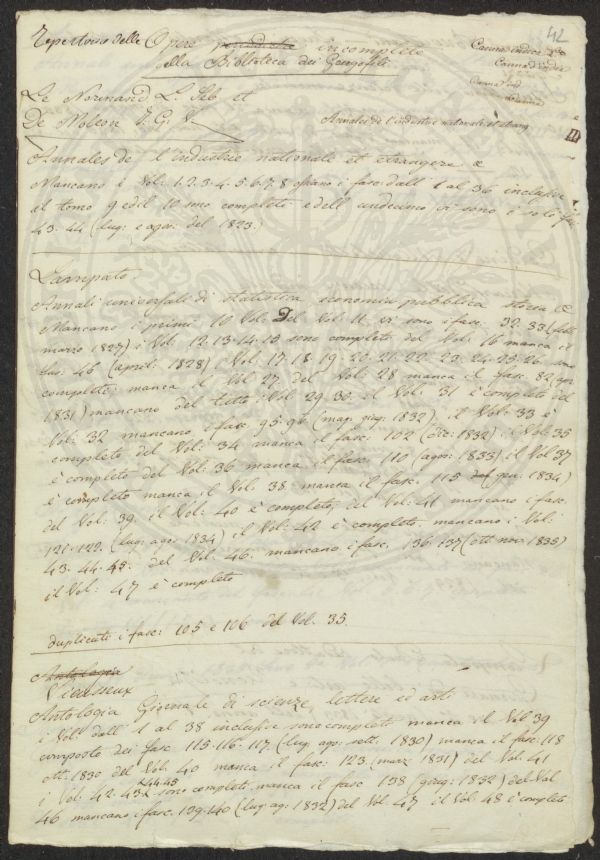 42
Repertorio delle Opere periodiche incomplete
della Biblioteca dei Georgofili
Le Normand L. Seb et
De Moleon J. G. V
Annales de l'industrie nationale et etrang
Annales de l'industrie nationale et etrangere &
Mancano i Vol: 1.2.3.4.5.6.7.8 ossiano i fasc: dall' 1 al 36 inclusive,
il tomo 9 ed il 10 sono completi e dell' undecimo vi sono i soli fas:
43.44 (lug: e agos: del 1823.)
Lampato.
Annali universali di statistica economia pubblica storia &
Mancano i primi 10 Vol: Del Vol: 11 vi sono i fasc: 32.33 (feb:
marzo 1827) i Vol: 12.13.14.15 sono completi del Vol: 16 manca il
fas: 46 (april: 1828) i Vol: 17.18.19.20.21.22.23.24.25.26 sono
completi: manca il Vol 27. del Vol: 28 manca il fasc: 82 (apr:
1831) mancano del tutto i Vol: 29.30. il Vol: 31 è completo del
Vol: 32 mancano i fasc: 95.96 (mag: giug: 1832), il Vol: 33 è
completo del Vol: 34 manca il fasc: 102 (dic: 1832) il Vol: 35
è completo del Vol: 36 manca il fasc: 110 (agos: 1833) il Vol 37
è completo manca il Vol: 38 manca il fasc: 115 (gen: 1834)
del Vol: 39. il Vol: 40 è completo, del Vol: 41 mancano i fasc.
121.122. (lug: ago: 1834) il Vol: 42 è completo. mancano i Vol:
43.44.45. del Vol: 46. mancano i fasc. 136.137 (ott: nov: 1835)
il Vol: 47 è completo
duplicati i fasc: 105 e 106 del Vol. 35.
Antologia
Vieusseux
Antologia Giornale di scienze, lettere ed arti
i Voll: dall' 1 al 38 inclusive sono completi manca il Vol 39
composto dei fasc 115.116.117. (lug: ago: sett: 1830) manca il fasc: 118
ott: 1830 del Vol: 40 manca il fasc: 123 (marz: 1831) del Vol: 41
i Vol: 42.43. 44.45 sono completi manca il fasc 138 (giug: 1832) del Vol
46 mancano i fasc. 139.140 (lug: ag: 1832) del Vol. 47 il Vol: 48 è completo